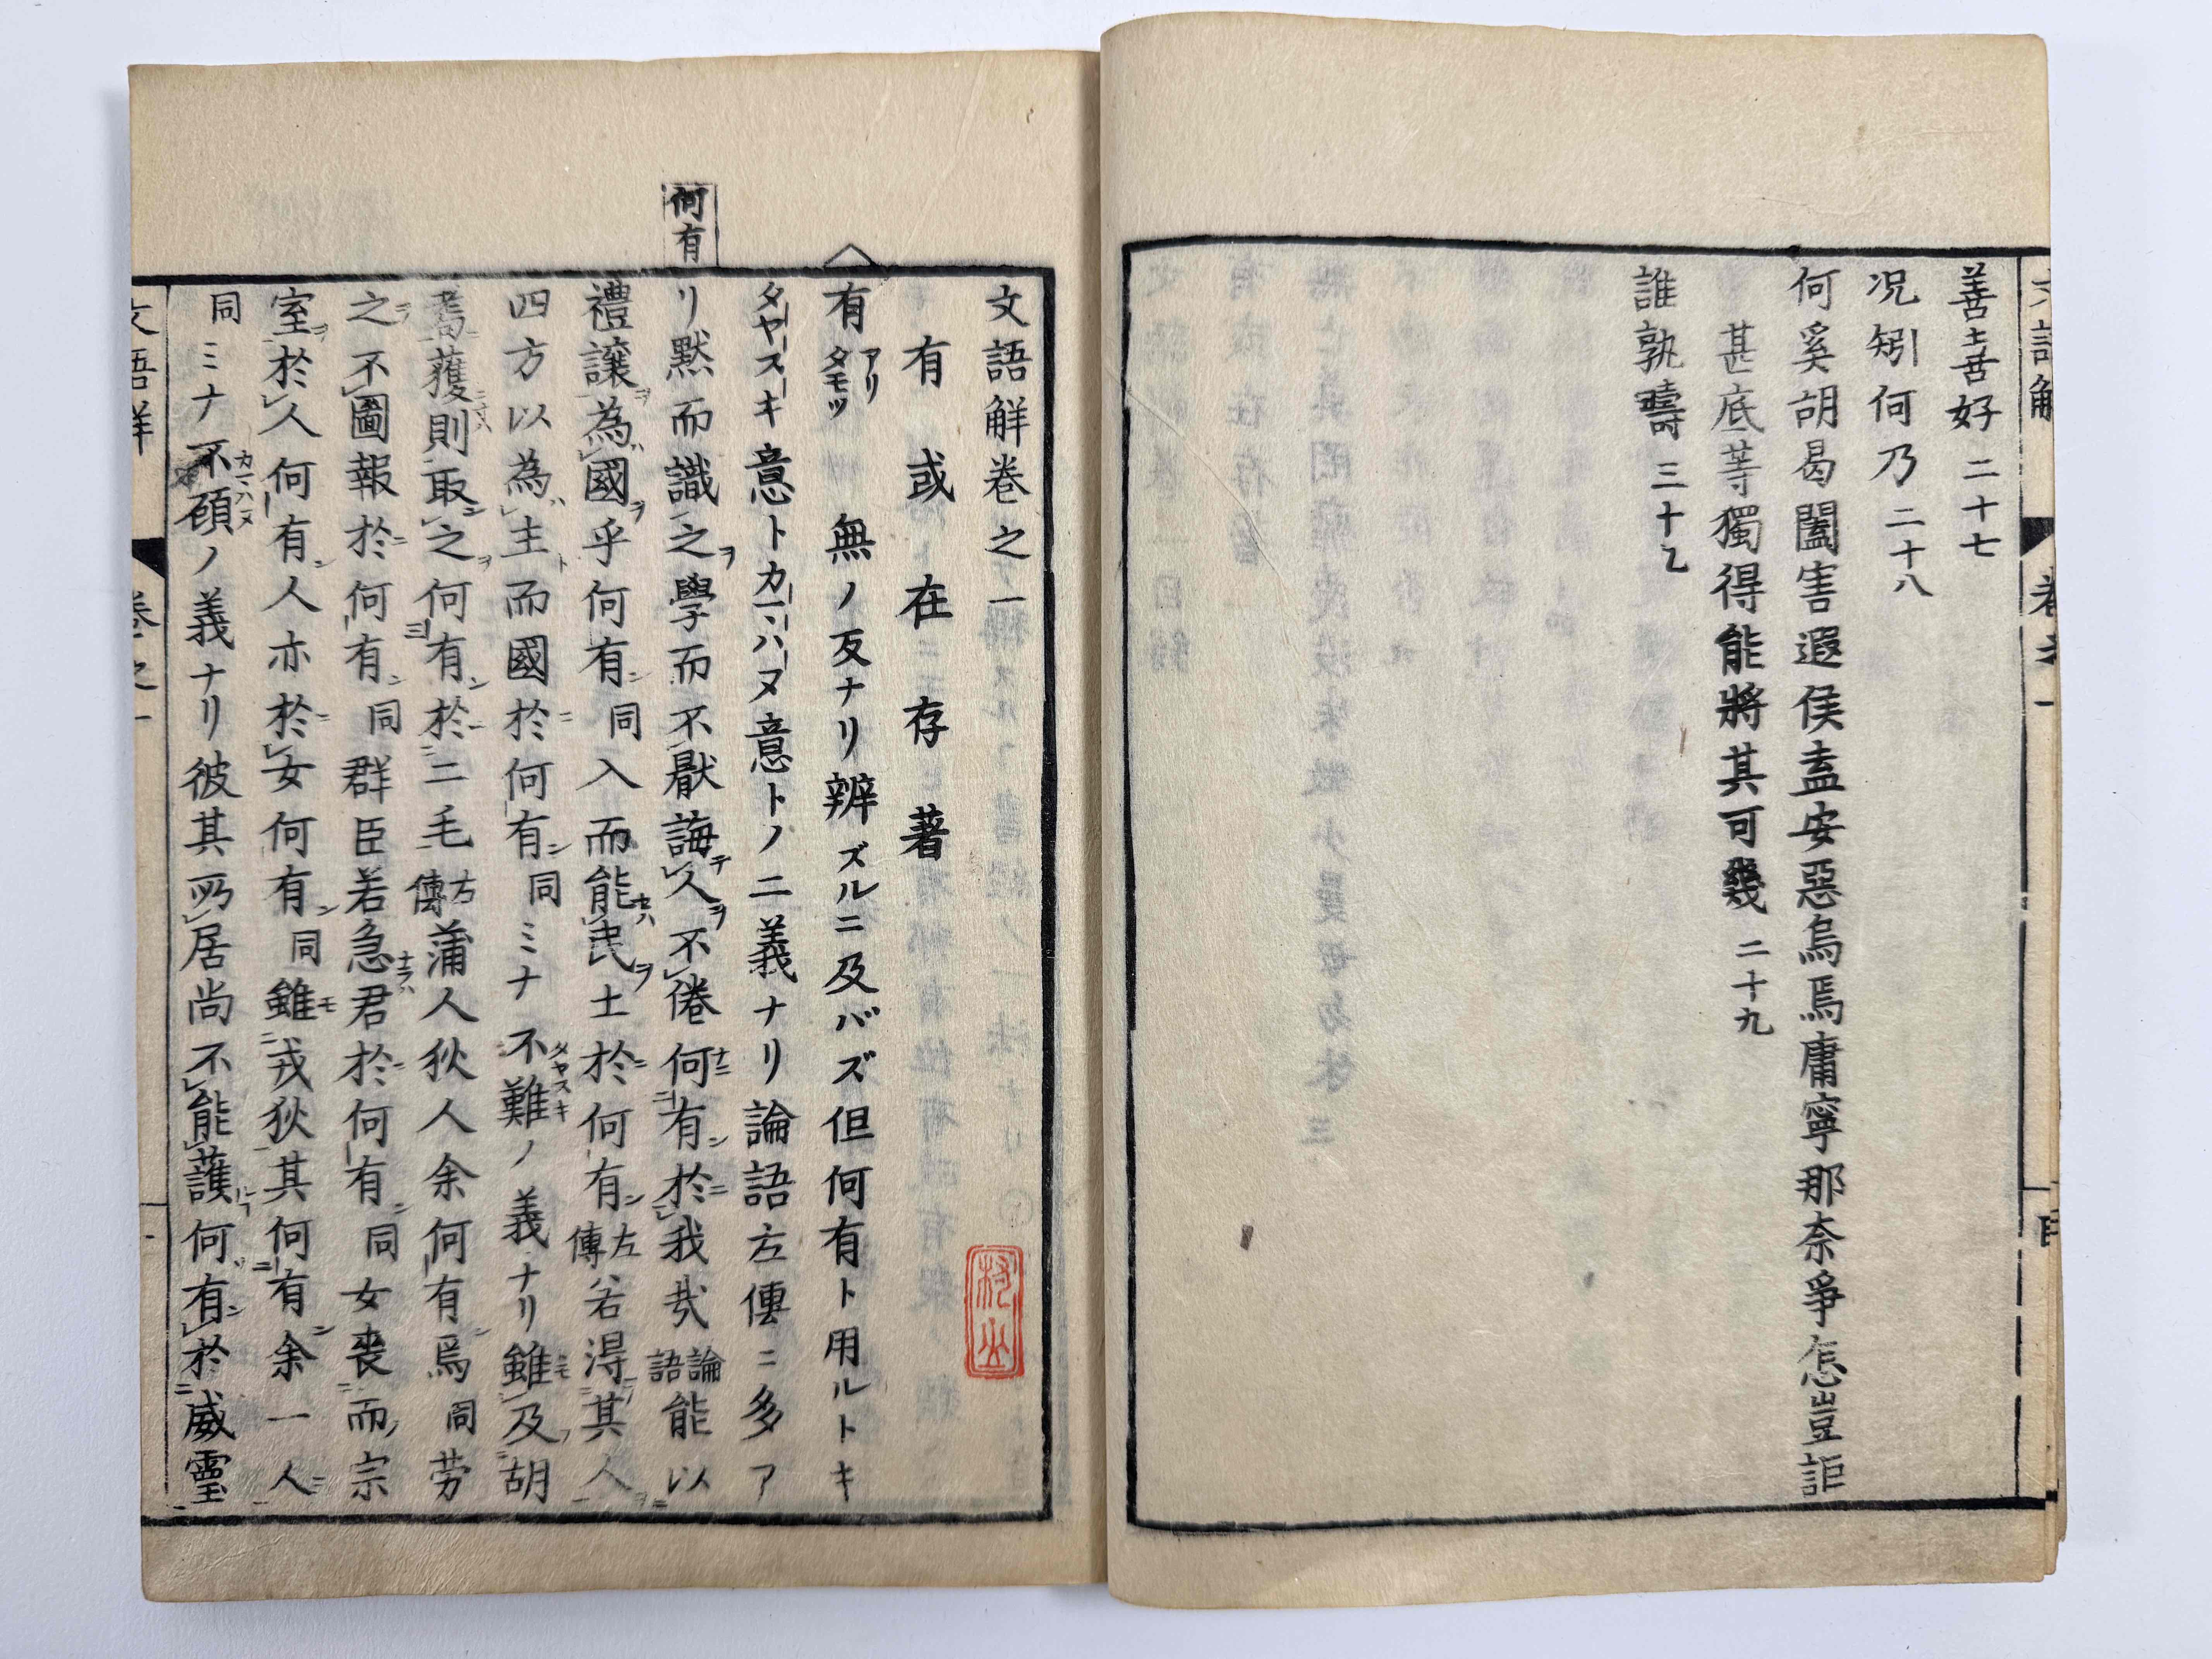 善譱好 二十七
况矧何乃 二十八
何奚胡曷闔害遐侯盍安惡烏焉庸寧那奈爭怎豈詎
甚底等獨得能將其可幾 二十九
誰孰疇 三十乙
文語解卷之一
有 或 在 存 著
有 アリ タモツ 無ノ反ナリ辨ズルニ及バズ但何有ト用ルトキ
タヤスキ意トカマハヌ意トノ二義ナリ論語左傳ニ多ア
何有
リ默而識之學而不厭誨人不倦何有於我哉 論語 能以
禮讓為國乎何有 同 入而能民土於何有 左傳 若得其人
四方以為主而國於何有 同 ミナ不難ノ義ナリ雖及胡
耇獲則取之何有於二毛 左傳 蒲人狄人余何有焉 同 労
之不圖報於何有 同 群臣若急君於何有 同 女喪而宗
室於人何有人亦於女何有 同 雖戎狄其何有余一人
同 ミナ不顧ノ義ナリ彼其所居尚不能護何有於威靈
文語解 卷之一